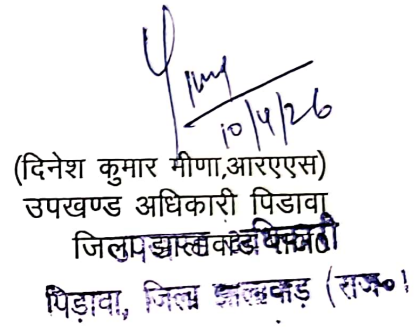 10/4/26
(दिनेश कुमार मीणा,आरएएस)
उपखण्ड अधिकारी पिडावा
पिड़ावा, जिला झालावाड़ (राज०)